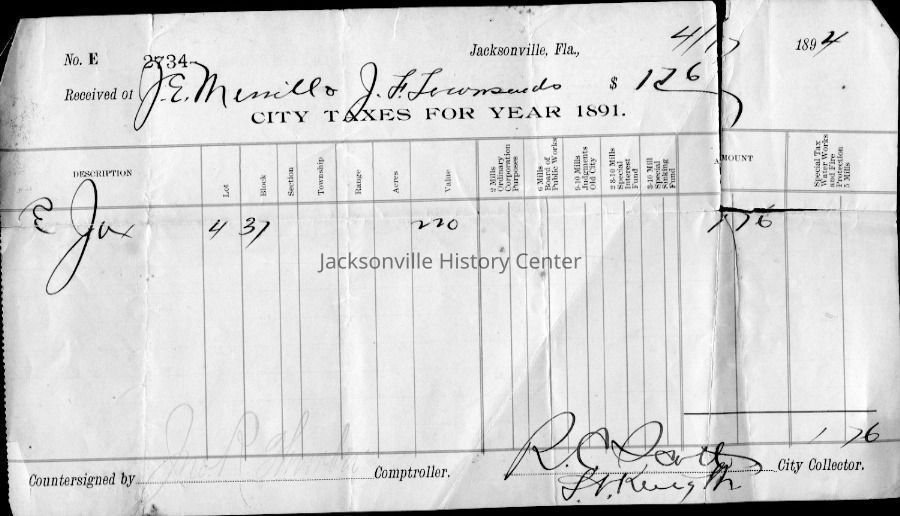 No. E 2734 Jacksonville, Fla., 4/17 1894
Received of J. E. Merrill o J. F. Townsends $ 176
CITY TAXES FOR YEAR 1891.
DESCRIPTION Lot Block Section Township Range Acres Value 2 Mills Ordinary Corporation Purposes 6 Mills Board of Public Works 9-10 Mills Judgments Old City 2 8-10 Mills Special Interest Fund 3-10 Mill Special Sinking Fund AMOUNT Special Tax Water Works and Fire Protection 5 Mills
E Jax 4 37 220 1 76
Jacksonville History Center
1 76
Countersigned by Comptroller. R. C. City Collector.